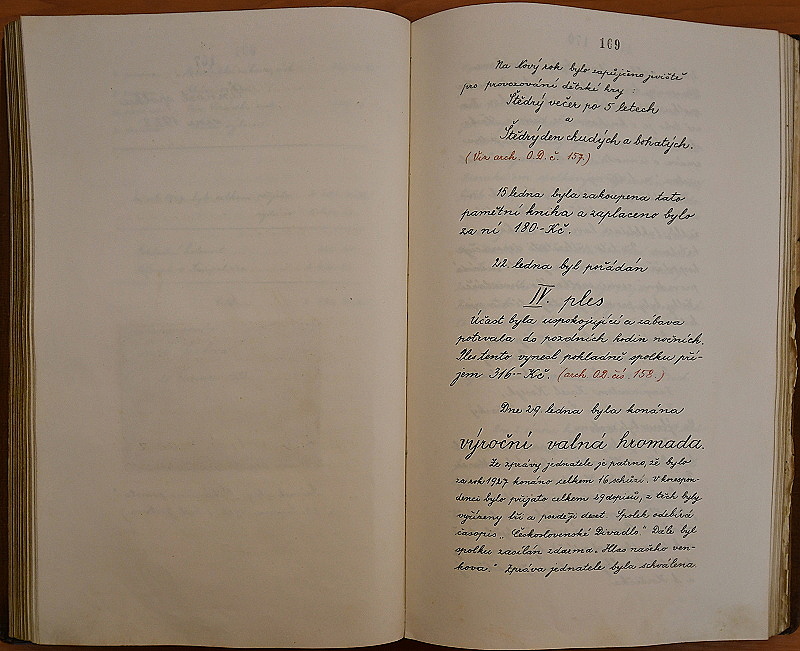 169
Na Nový rok bylo zapůjčeno jeviště
pro provozování dětské hry:
Štědrý večer po 5 letech
a
Štědrý den chudých a bohatých.
(Viz arch. O.D. č. 157.)
15 ledna byla zakoupena tato
pamětní kniha a zaplaceno bylo
za ní 180·- Kč.
22. ledna byl pořádán
IV. ples
Účast byla uspokojující a zábava
potrvala do pozdních hodin nočních.
Ples tento vynesl pokladně spolku pří-
jem 316·- Kč. (arch. O.D. čís. 158.)
Dne 29. ledna byla konána
výroční valná hromada.
Ze zprávy jednatele je patrno, že bylo
za rok 1927 konáno celkem 16 schůzí. V korespon-
denci bylo přijato celkem 29 dopisů, z těch byly
vyřízeny tři a později deset. Spolek odebírá
časopis „Československé Divadlo." Dále byl
spolku zasílán zdarma „Hlas našeho ven-
kova." Zpráva jednatele byla schválena.